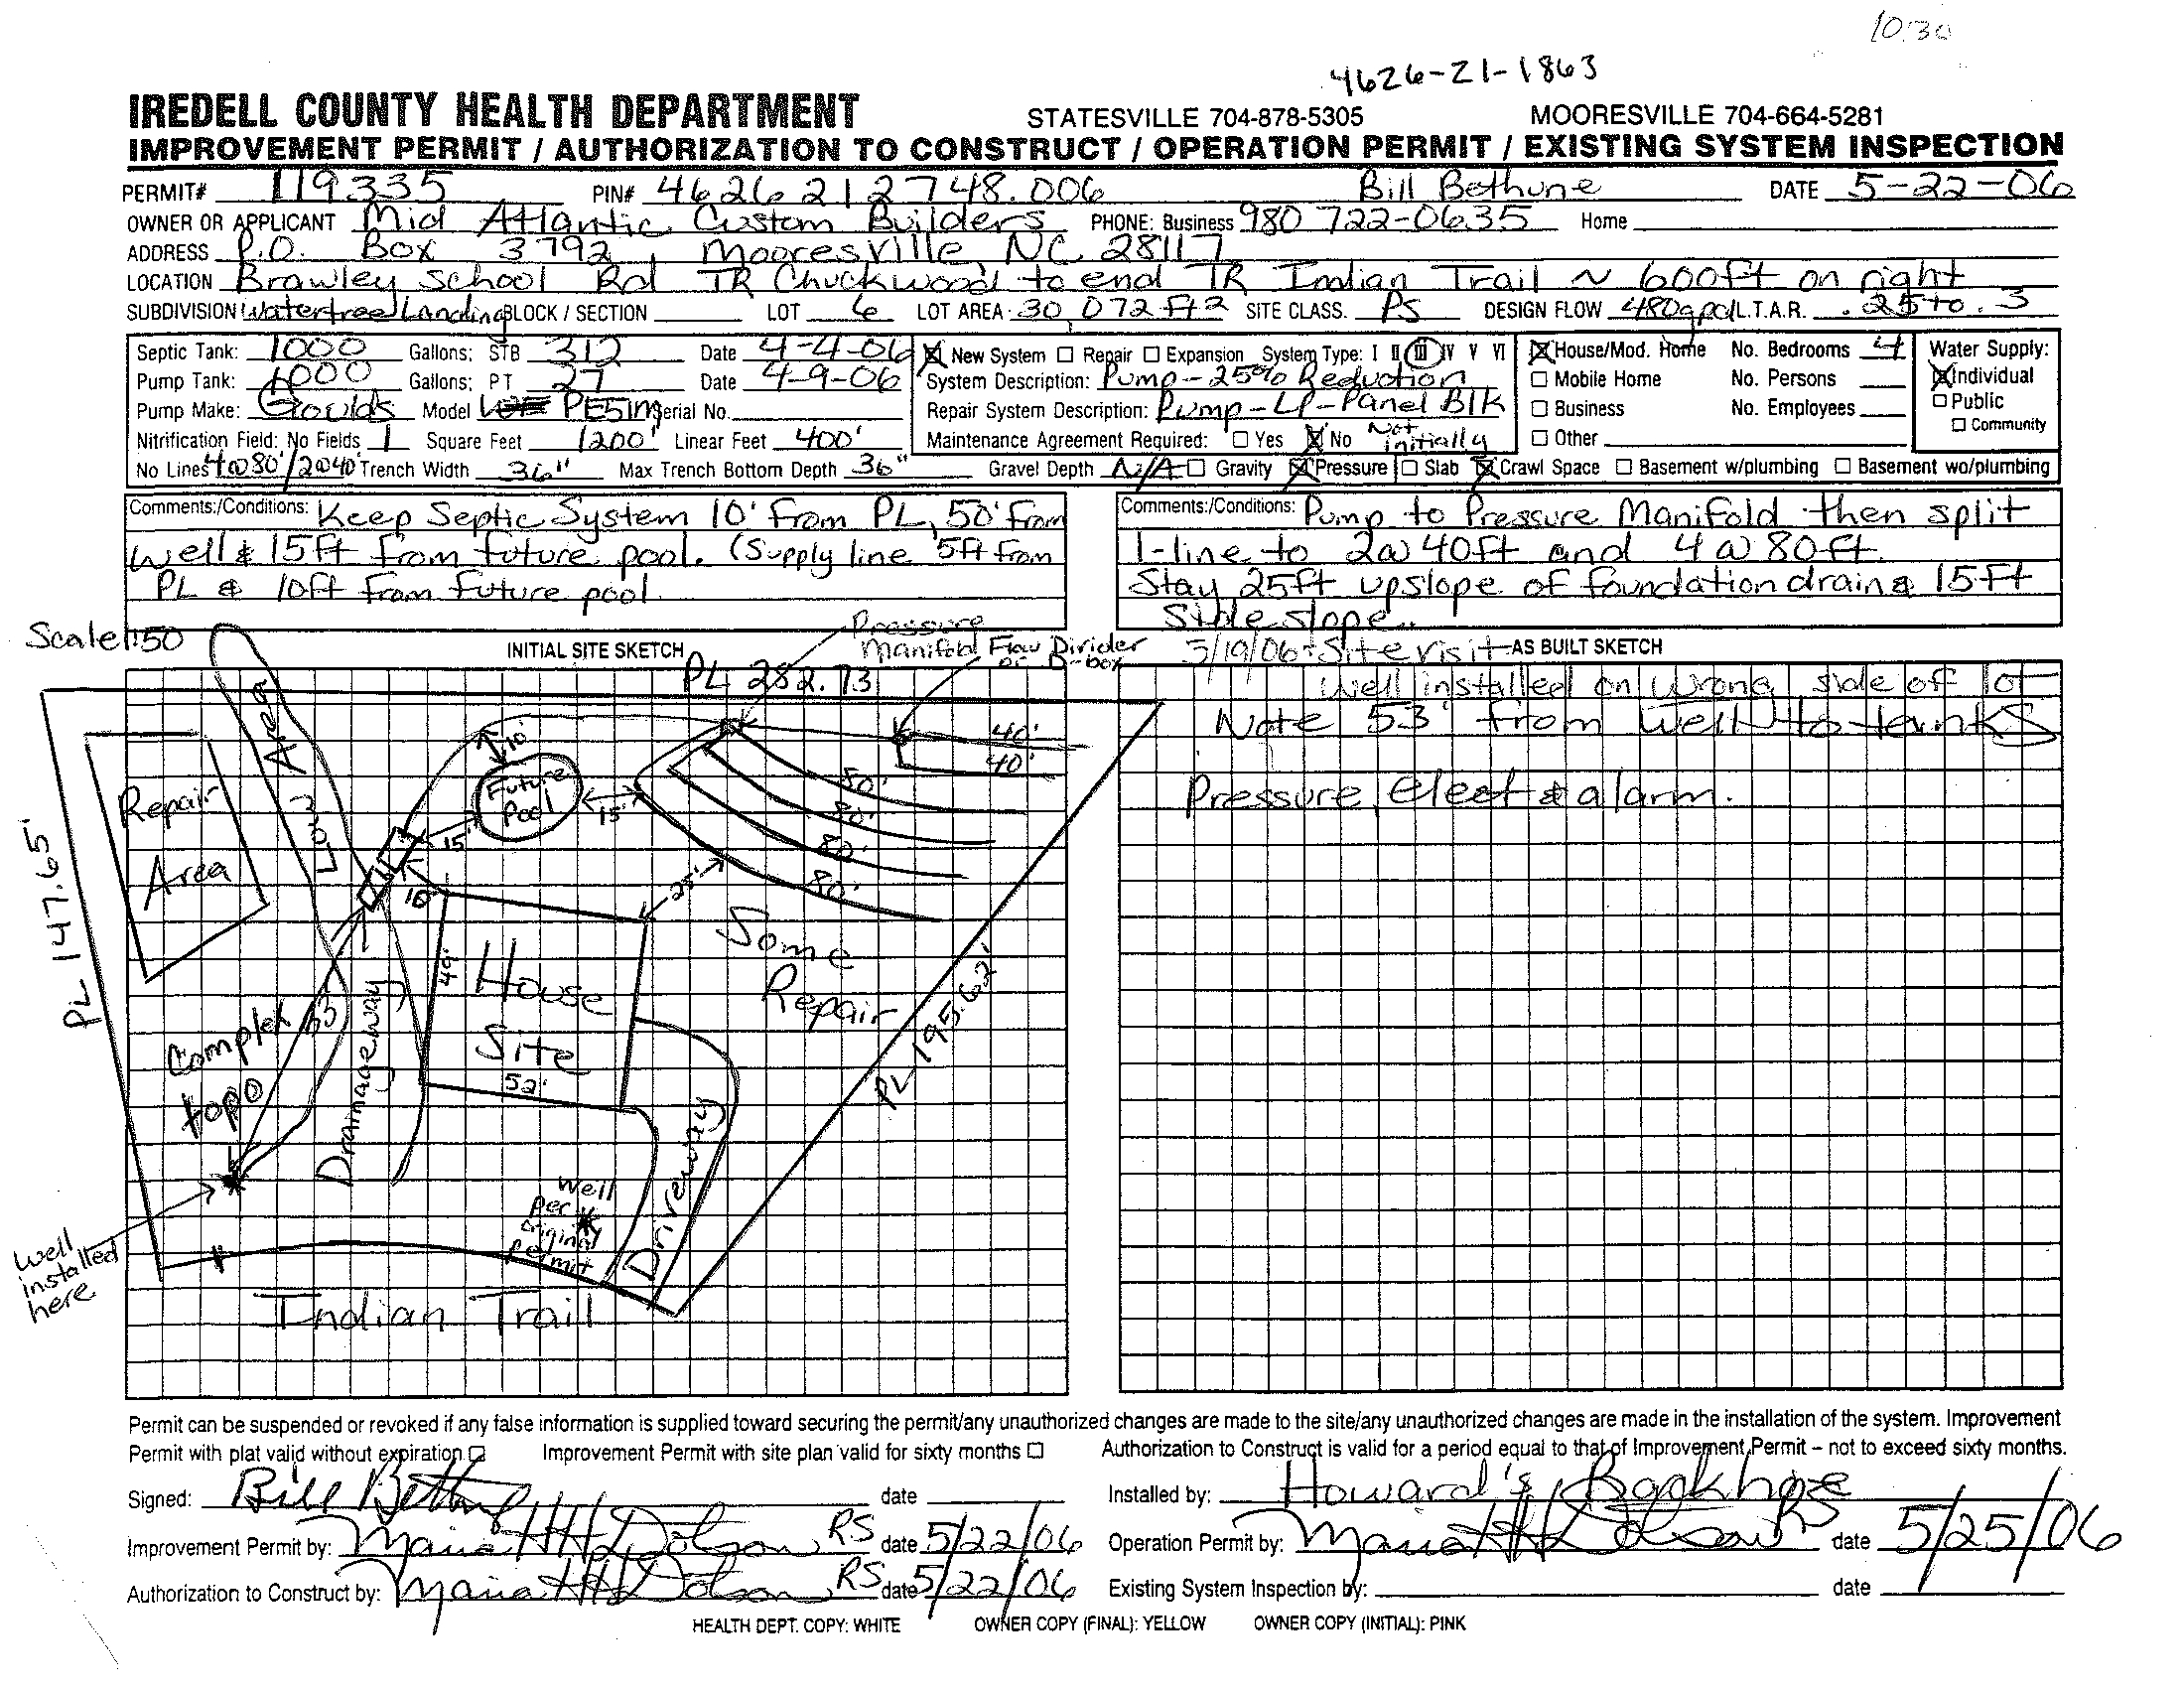 10:30
4626-21-1863
IREDELL COUNTY HEALTH DEPARTMENT STATESVILLE 704-878-5305 MOORESVILLE 704-664-5281
IMPROVEMENT PERMIT / AUTHORIZATION TO CONSTRUCT / OPERATION PERMIT / EXISTING SYSTEM INSPECTION
PERMIT# 119335 PIN# 4626212748.006 Bill Bethune DATE 5-22-06
OWNER OR APPLICANT Mid Atlantic Custom Builders PHONE: Business 980 722-0635 Home
ADDRESS P.O. Box 3792, Mooresville, NC 28117
LOCATION Brawley School Rd TR Chuckwood to end TR Indian Trail ~ 600ft on right
SUBDIVISION Watertree Landing BLOCK / SECTION LOT 6 LOT AREA 30,072 ft2 SITE CLASS. PS DESIGN FLOW 480gpd L.T.A.R. .25 to .3
Septic Tank: 1000 Gallons; STB 312 Date 4-4-06
Pump Tank: 1000 Gallons; PT 27 Date 4-9-06
Pump Make: Goulds Model PE51M Serial No.
Nitrification Field: No Fields 1 Square Feet 1200' Linear Feet 400'
No Lines 4@80'/2@40' Trench Width 36" Max Trench Bottom Depth 36" Gravel Depth N/A ☐ Gravity ☒ Pressure ☐ Slab ☒ Crawl Space ☐ Basement w/plumbing ☐ Basement wo/plumbing
☒ New System ☐ Repair ☐ Expansion System Type: I II III IV V VI
System Description: Pump-25% Reduction
Repair System Description: Pump-LP-Panel Blk
Maintenance Agreement Required: ☐ Yes ☒ No Not initially
☒ House/Mod. Home No. Bedrooms 4
☐ Mobile Home No. Persons
☐ Business No. Employees
☐ Other
Water Supply:
☒ Individual
☐ Public
☐ Community
Comments:/Conditions: Keep Septic System 10' from PL, 50' from
well & 15ft from future pool. (Supply line 5ft from
PL & 10ft from future pool
Comments:/Conditions: Pump to Pressure Manifold then split
1-line to 2@40ft and 4@80ft.
Stay 25ft upslope of foundation drain & 15ft
Side slope.
Scale 1:50
INITIAL SITE SKETCH
Pressure
Manifold
Flow Divider
or D-box
PL 282.73
Low Area
10'
40'
40'
Future
Pool
15'
15'
80'
80'
80'
80'
Repair
Area
10'
25'
PL 147.65'
49'
House
Site
52'
Some
Repair
PL 195.62'
Complex
topo
53'
Drainageway
Driveway
well
per
original
permit
well
installed
here
Indian Trail
5/19/06 Site visit AS BUILT SKETCH
Well installed on wrong side of lot
Note 53' from well to tanks
Pressure, elect & alarm.
Permit can be suspended or revoked if any false information is supplied toward securing the permit/any unauthorized changes are made to the site/any unauthorized changes are made in the installation of the system. Improvement
Permit with plat valid without expiration ☐ Improvement Permit with site plan valid for sixty months ☐ Authorization to Construct is valid for a period equal to that of Improvement Permit – not to exceed sixty months.
Signed: Bill Bethune date Installed by: Howard's Backhoe
Improvement Permit by: Maria H Dotson RS date 5/22/06 Operation Permit by: Maria H Dotson RS date 5/25/06
Authorization to Construct by: Maria H Dotson RS date 5/22/06 Existing System Inspection by: date
HEALTH DEPT. COPY: WHITE OWNER COPY (FINAL): YELLOW OWNER COPY (INITIAL): PINK